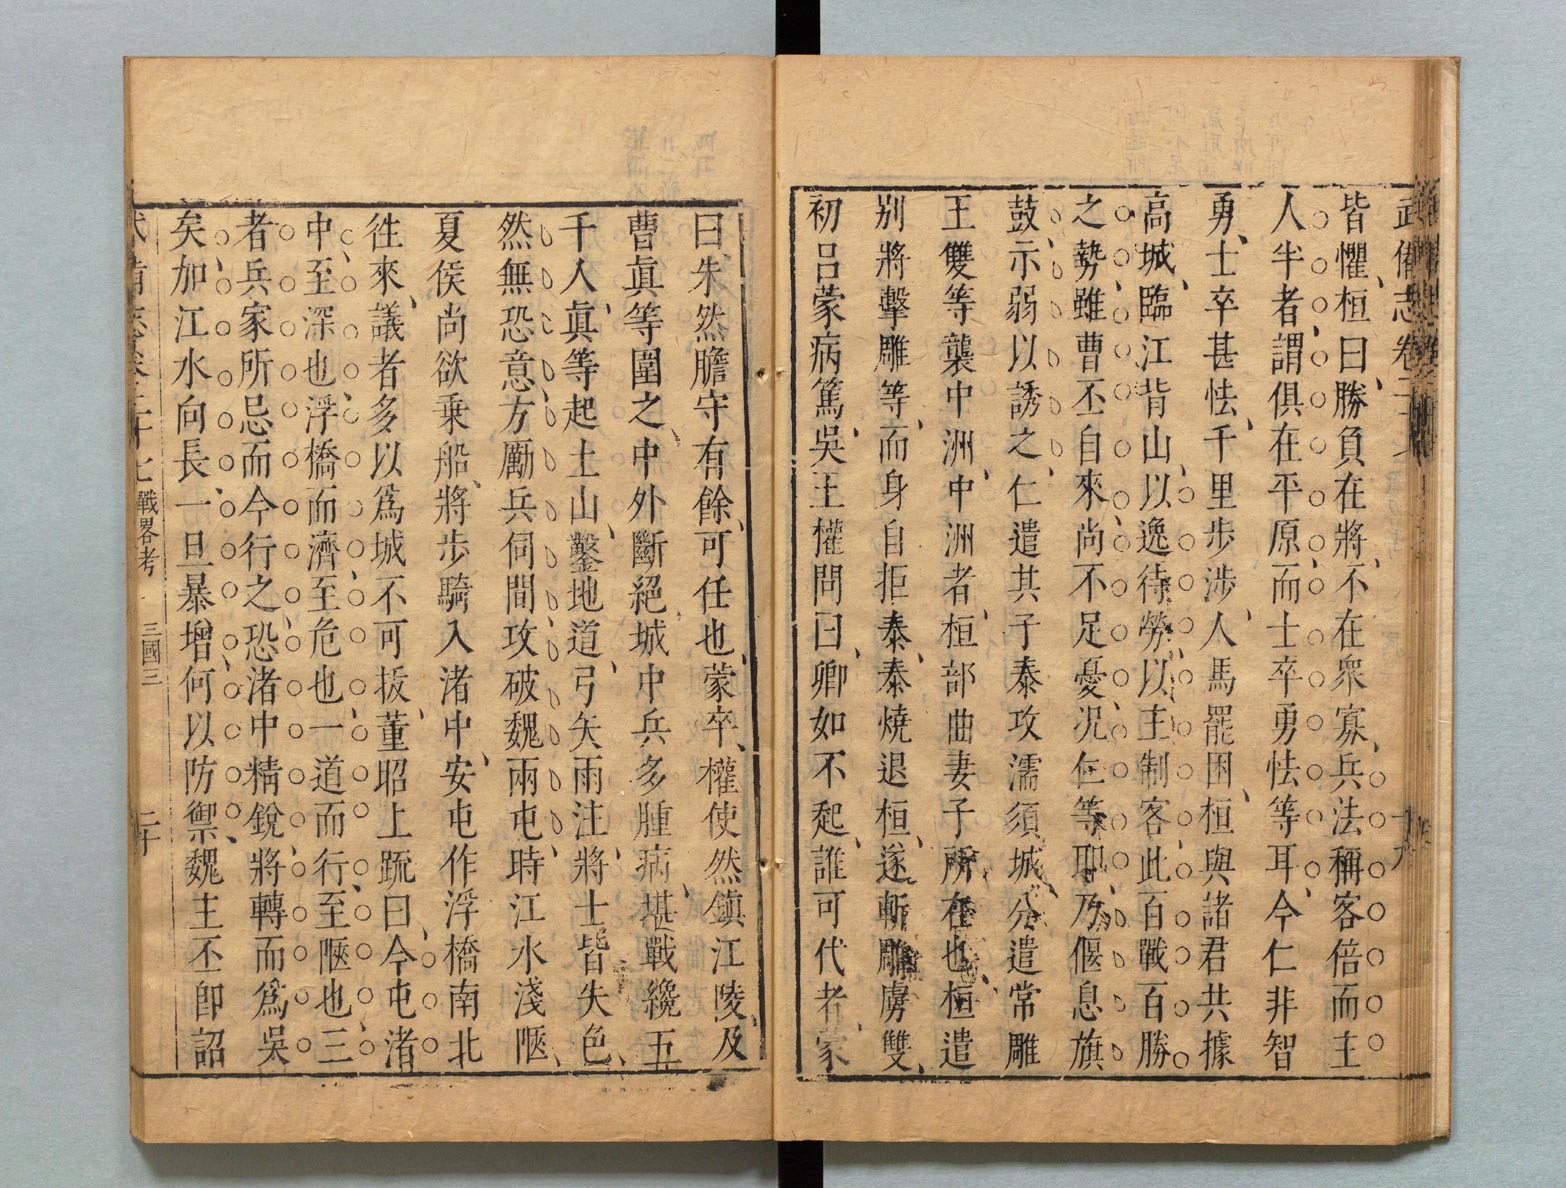 武備志卷二十七 十九
皆懼、桓曰、勝負在將、不在衆寡、兵法稱客倍而主
人半者、謂俱在平原、而士卒勇怯等耳、今仁非智
勇、士卒甚怯、千里步涉、人馬罷困、桓與諸君共據
高城、臨江背山、以逸待勞、以主制客、此百戰百勝
之勢、雖曹丕自來、尚不足憂、况仁等耶、乃偃息旗
鼓、示弱以誘之、仁遣其子泰攻濡須城、分遣常雕
王雙等襲中洲、中洲者、桓部曲妻子所在也、桓遣
別將擊雕等、而身自拒泰、泰燒退桓、遂斬雕虜雙、
初呂蒙病篤、吳王權問曰、卿如不起、誰可代者、蒙
曰、朱然膽守有餘、可任也、蒙卒、權使然鎮江陵、及
曹眞等圍之、中外斷絕、城中兵多腫病、堪戰纔五
千人、眞等起土山、鑿地道、弓矢雨注、將士皆失色、
然無恐意、方勵兵伺間、攻破魏兩屯、時江水淺陿、
夏侯尚欲乗船、將步騎入渚中、安屯作浮橋南北
徃來、議者多以爲城不可拔、董昭上䟽曰、今屯渚
中、至深也、浮橋而濟、至危也、一道而行、至陿也、三
者兵家所忌、而今行之、恐渚中精銳、將轉而爲吳
矣、加江水向長、一旦暴增、何以防禦、魏主丕卽詔
武備志卷二十七 戰畧考 三國三 二十